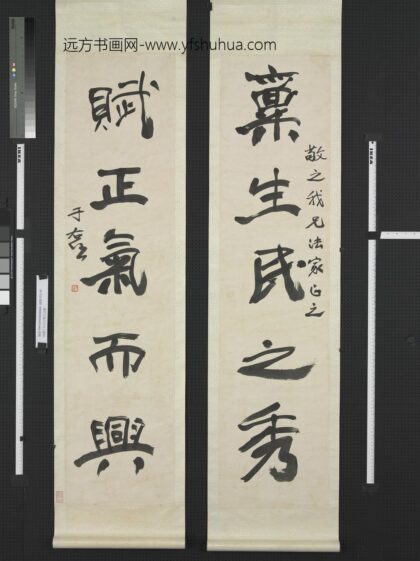 远方书画网-www.yfshuhua.com
稟生民之秀
敬之我兄法家正之
賦正氣而興
于右任